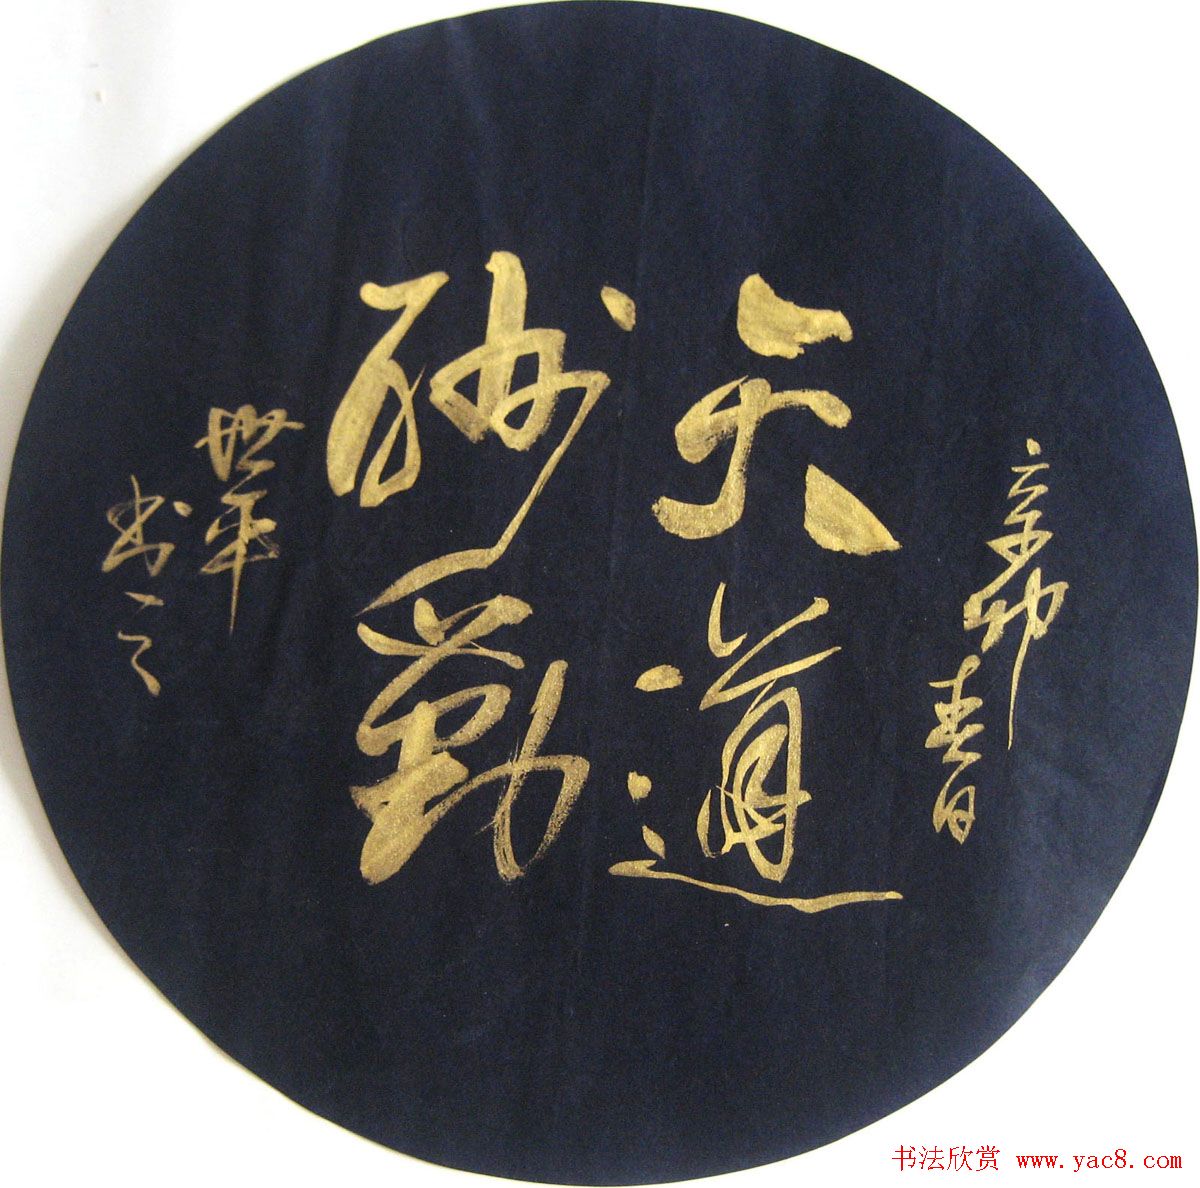 辛卯春日
天道
酬勤
世华
书之
书法欣赏 www.yac8.com